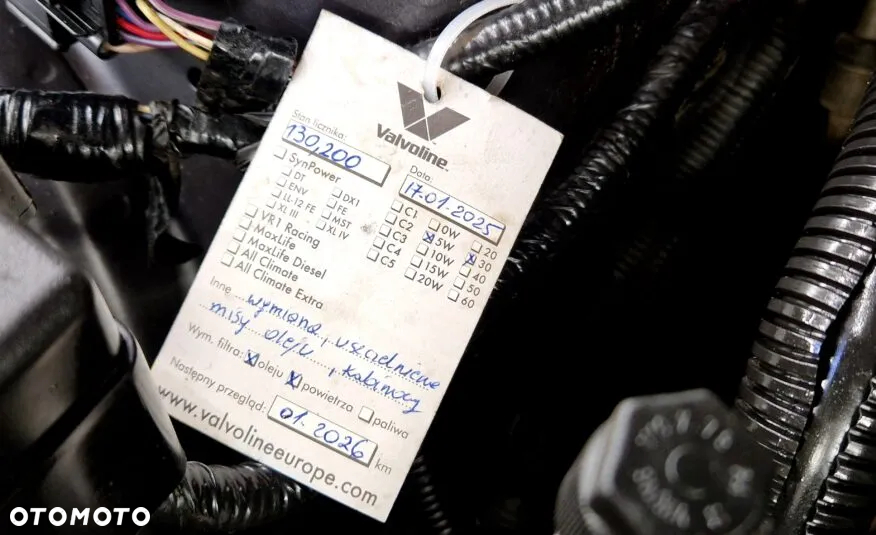 Valvoline™
Stan licznika:
130,200
Data:
17.01.2025
SynPower
DT
ENV
LL-12 FE
XL III
DX1
FE
MST
XL IV
VR1 Racing
MaxLife
MaxLife Diesel
All Climate
All Climate Extra
C1
C2
C3
C4
C5
0W
5W
10W
15W
20W
20
30
40
50
60
Inne wymiana, uszczelnienie
misy oleju, kabinowy
Wym. filtra: x oleju x powietrza paliwa
Następny przegląd: 01.2026 km
www.valvolineeurope.com
OTOMOTO